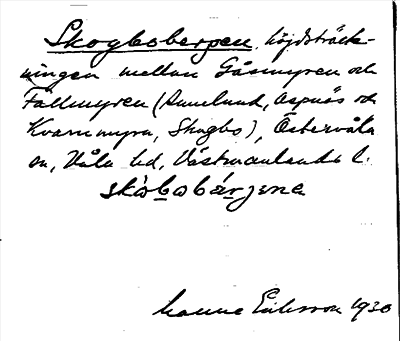 Skogbobergen, höjdsträck-
ningen mellan Gåsmyren och
Fällmyren (Annelund, Aspnäs och
Kvarnmyra, Skogbo), Östervåla
sn, Våla hd, Västmanlands l.
skòbobárjena
Manne Eriksson 1930